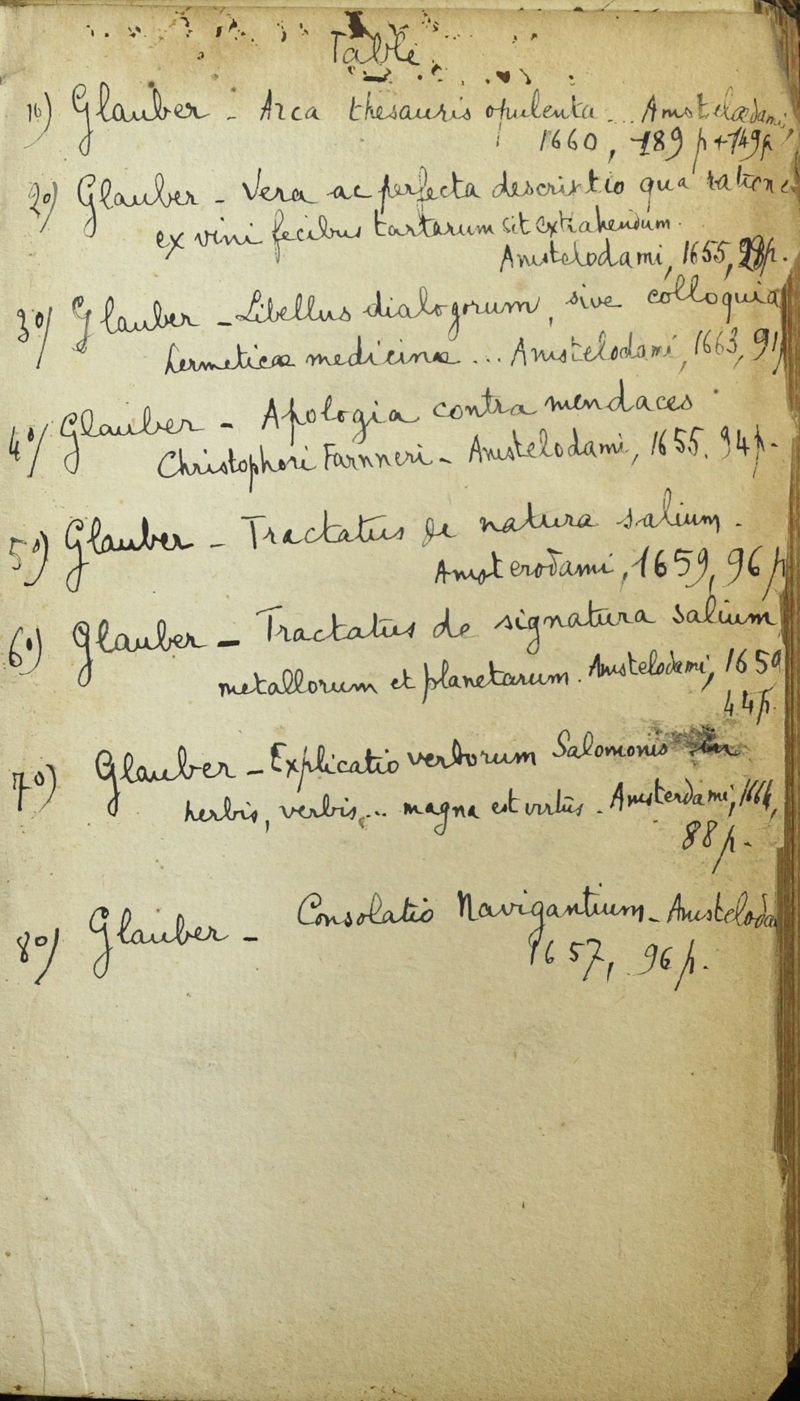 Table
1o) Glauber - Arca thesauris opulenta... Amstelædami,
1660, 189 p + 149 p
2o) Glauber - Vera ac perfecta descriptio qua ratione
ex vini fecibus tartarum sit extrahendum.
Amstelodami, 1655, 28 p.
3o) Glauber - Libellus dialogorum, sive colloquia
hermeticæ medicinæ ... Amstelodami, 1663, 91 p
4o) Glauber - Apologia contra mendaces
Christophori Farnneri - Amstelodami, 1655. 94 p.
5o) Glauber - Tractatus de natura salium.
Amsterodami, 1659, 96 p
6o) Glauber - Tractatus de signatura salium
metallorum et planetarum. Amstelodami, 1659
44 p.
7o) Glauber - Explicatio verborum Salomonis in
herbis, verbis, ... magna est virtus. Amsterdami, 1664,
88 p.
8o) Glauber - Consolatio Navigantium - Amsteloda
1657, 96 p.